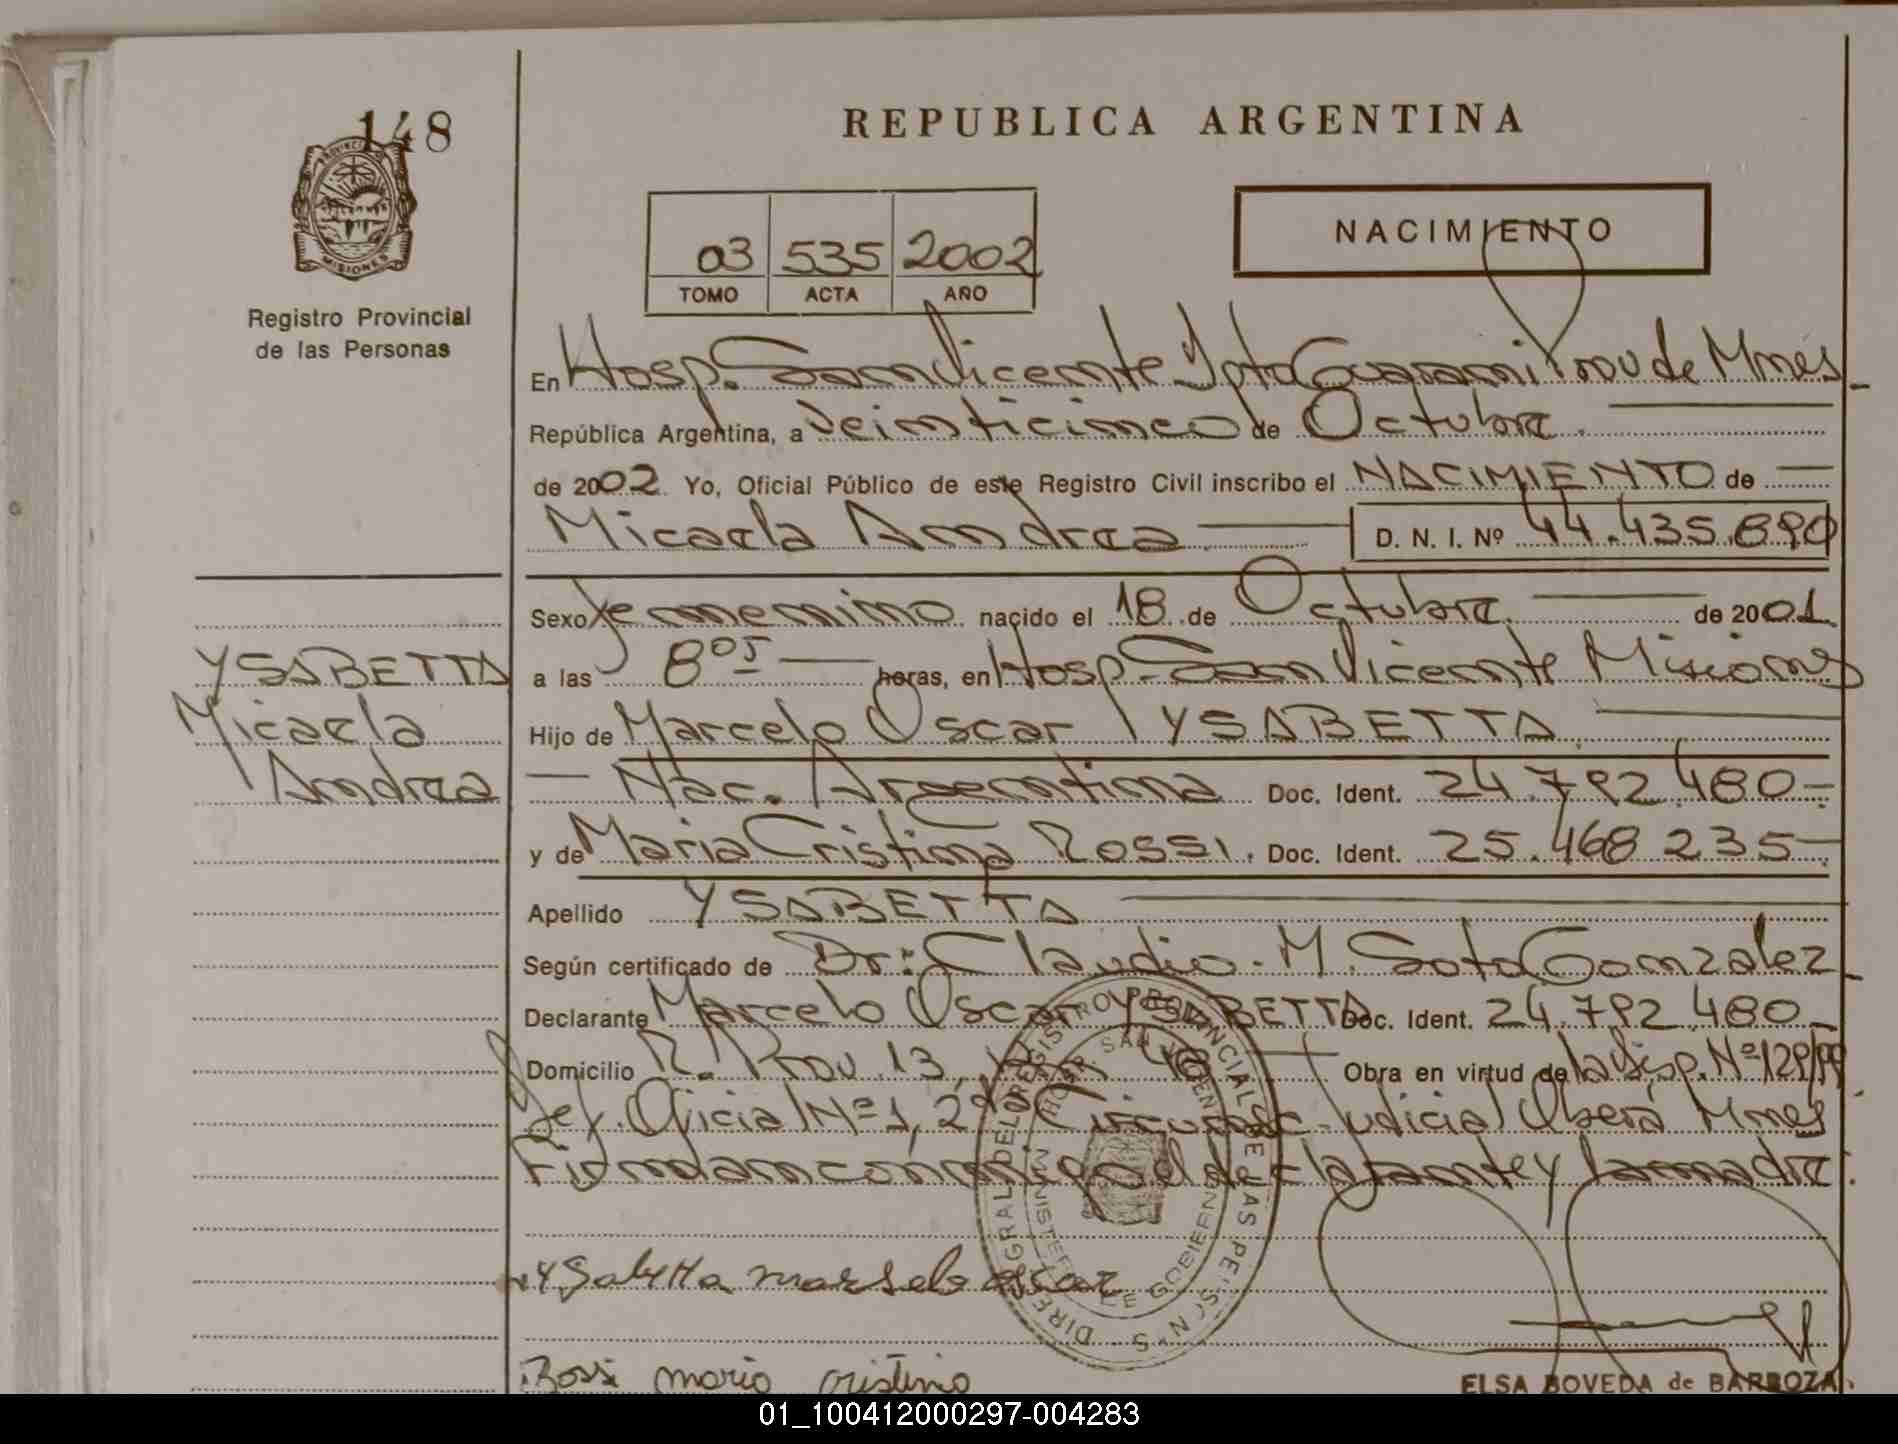 148
PROVINCIA DE
MISIONES
Registro Provincial
de las Personas
REPUBLICA ARGENTINA
03 535 2002
TOMO ACTA AÑO
NACIMIENTO
En Hosp. San Vicente Dpto Guarani Prov de Mnes
República Argentina, a Veinticinco de Octubre
de 2002 Yo, Oficial Público de este Registro Civil inscribo el NACIMIENTO de
Micaela Andrea D. N. I. Nº 44.435.890
Sexo femenino nacido el 18 de Octubre de 2001
a las 8 05 horas, en Hosp. San Vicente Misiones
Hijo de Marcelo Oscar YSABETTA
Nac. Argentina Doc. Ident. 24.792.480
y de Maria Cristina Rossi. Doc. Ident. 25.468.235
Apellido YSABETTA
Según certificado de Dr: Claudio. M. Soto Gonzalez
Declarante Marcelo Oscar YSABETTA Doc. Ident. 24.792.480
Domicilio R. Prov. 13, 48 Obra en virtud de la Disp. Nº 129/99
Def. Oficial Nº 1, 2da Circunsc. Judicial Oberá Mnes
Firman conmigo el declarante y la madre.
YSABETTA
Micaela
Andrea
DIREC. GRAL DEL REGISTRO PROVINCIAL DE LAS PERSONAS
HOSP. SAN VICENTE
MINISTERIO DE GOBIERNO
Ysabetta marselo oscar
Rossi maria cristina
ELSA BOVEDA de BARBOZA
01_100412000297-004283